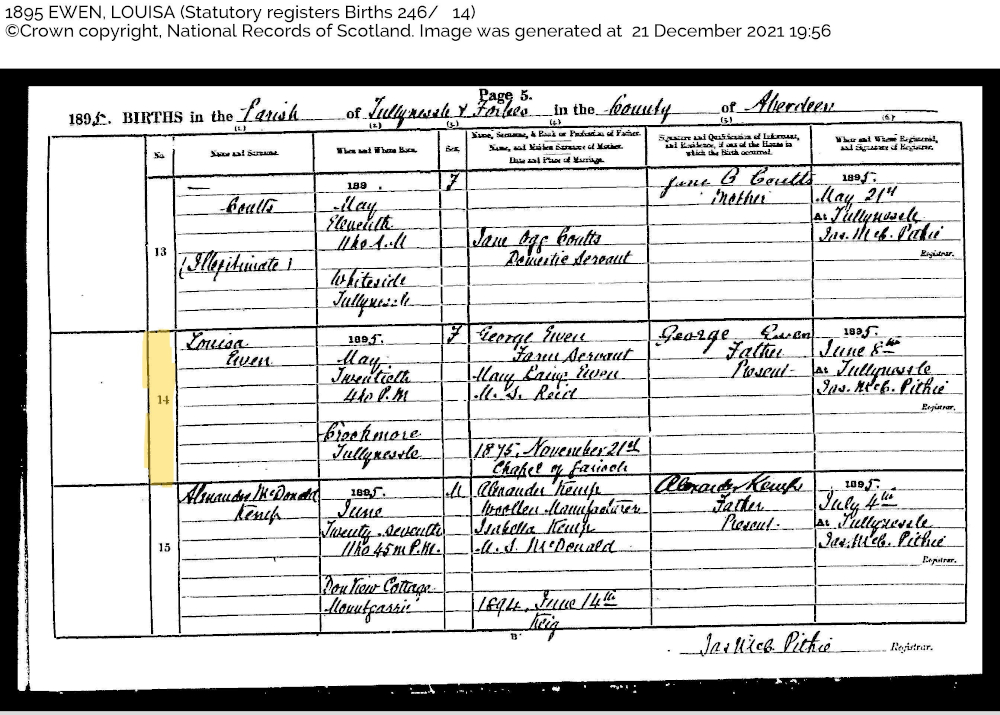 1895 EWEN, LOUISA (Statutory registers Births 246/ 14)
©Crown copyright, National Records of Scotland. Image was generated at 21 December 2021 19:56
Page 5.
1895. BIRTHS in the Parish of Tullynessle & Forbes in the County of Aberdeen
(1.) (2.) (3.) (4.) (5.) (6.)
No. Name and Surname. When and Where Born. Sex.
Name, Surname, & Rank or Profession of Father.
Name, and Maiden Surname of Mother.
Date and Place of Marriage.
Signature and Qualification of Informant,
and Residence, if out of the House in
which the Birth occurred.
When and Where Registered,
and Signature of Registrar.
13
—
Coutts
(Illegitimate)
189 .
May
Eleventh
11h0 A.M
Whiteside
Tullynessle
F
Jane Ogg Coutts
Domestic Servant
Jane O Coutts
Mother
1895.
May 21st
At Tullynessle
Jas. McC. Pithie
Registrar.
14
Louisa
Ewen
1895.
May
Twentieth
4h0 P.M
Crookmore
Tullynessle
F
George Ewen
Farm Servant
Mary Laing Ewen
M. S. Reid
1875, November 21st
Chapel of Garioch
George Ewen
Father
Present
1895.
June 8th
At Tullynessle
Jas. McC. Pithie
Registrar.
15
Alexander McDonald
Kemp
1895.
June
Twenty seventh
11h0 45m P.M.
Don View Cottage
Mountgarrie
M
Alexander Kemp
Woollen Manufacturer
Isabella Kemp
M. S. McDonald
1894, June 14th
Keig
Alexander Kemp
Father
Present
1895.
July 4th
At Tullynessle
Jas. McC. Pithie
Registrar.
B
Jas McC. Pithie Registrar.